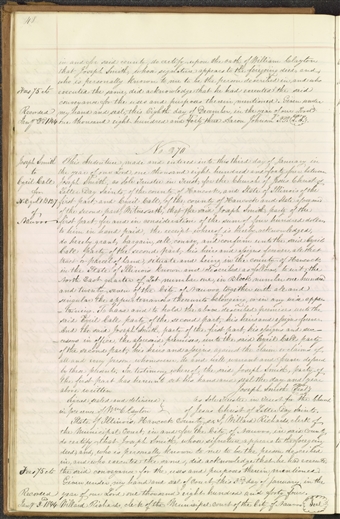 42
in and for said county, do certify upon the oath of William Clayton
that Joseph Smith, whose signature appears to the foregoing deed, and
who is personally known to me to be the person described in and who
executed the same, did acknowledge that he has executed the said
conveyance for the uses and purposes therein mentioned. Given under
my hand and seal, this eighth day of December, in the year of our Lord
one thousand eight hundred and forty three
Fees, 75 cts
Recorded
No 270
Joseph Smith
to
Cyril Call
for
Nauvoo
This Indenture, made and entered into this third day of January in
the year of our Lord one thousand eight hundred and forty four between
Joseph Smith, as sole Trustee in Trust for the Church of Jesus Christ of
Latter Day Saints of the county of Hancock and State of Illinois of the
first part and Cyril Call of the county of Hancock and State aforesaid
of the second part, Witnesseth, that the said Joseph Smith party of the
first part for and in consideration of the sum of four hundred dollars
to him in hand paid, the receipt whereof is hereby acknowledged,
do hereby grant, bargain, sell, convey and confirm unto the said Cyril
Call Party of the second part, his heirs and assigns forever all that
tract or parcel of land, situate and being in the county of Hancock
in the State of Illinois known and described as follows to wit, the
North East quarter of Lot number one, in Block number one hundred
and of the City of Nauvoo together with all and
singular the appurtenances thereunto belonging, or in any wise apper-
taining. To have and to hold the above described premises unto the
said Cyril Call party of the second part, his heirs and assigns forever.
And the said Joseph Smith, party of the first part, his
in office, the aforesaid premises, unto the said Cyril Call party
of the second part, his heirs and assigns against the claim or claims of
all and every person whomsoever, do and will warrant and forever defend
by these presents. In testimony whereof, the said Joseph Smith, party of
the first part has hereunto set his hand and seal the day and year
above written.
Joseph Smith
Signed sealed and delivered
as sole Trustee in Trust for the Church
in presence of Wm Clayton
of Jesus Christ of Latter Day Saints.
State of Illinois, Hancock County, ss, I Willard Richards clerk of
the Municipal Court, in and for the City of Nauvoo, in said county
do certify, that Joseph Smith, whose signature appears to the foregoing
deed and, who is personally known to me to be the person described
in, and who executed the same, did acknowledge that he has executed
the said conveyance, for the uses and purposes therein mentioned.
Given under my hand and seal of Court, this 3d day of January, in the
year of our Lord one thousand eight hundred and forty four
Fees, 75 cts
Recorded
Jany 3d 1844
Willard Richards clerk of the Municipal court of the City of Nauvoo